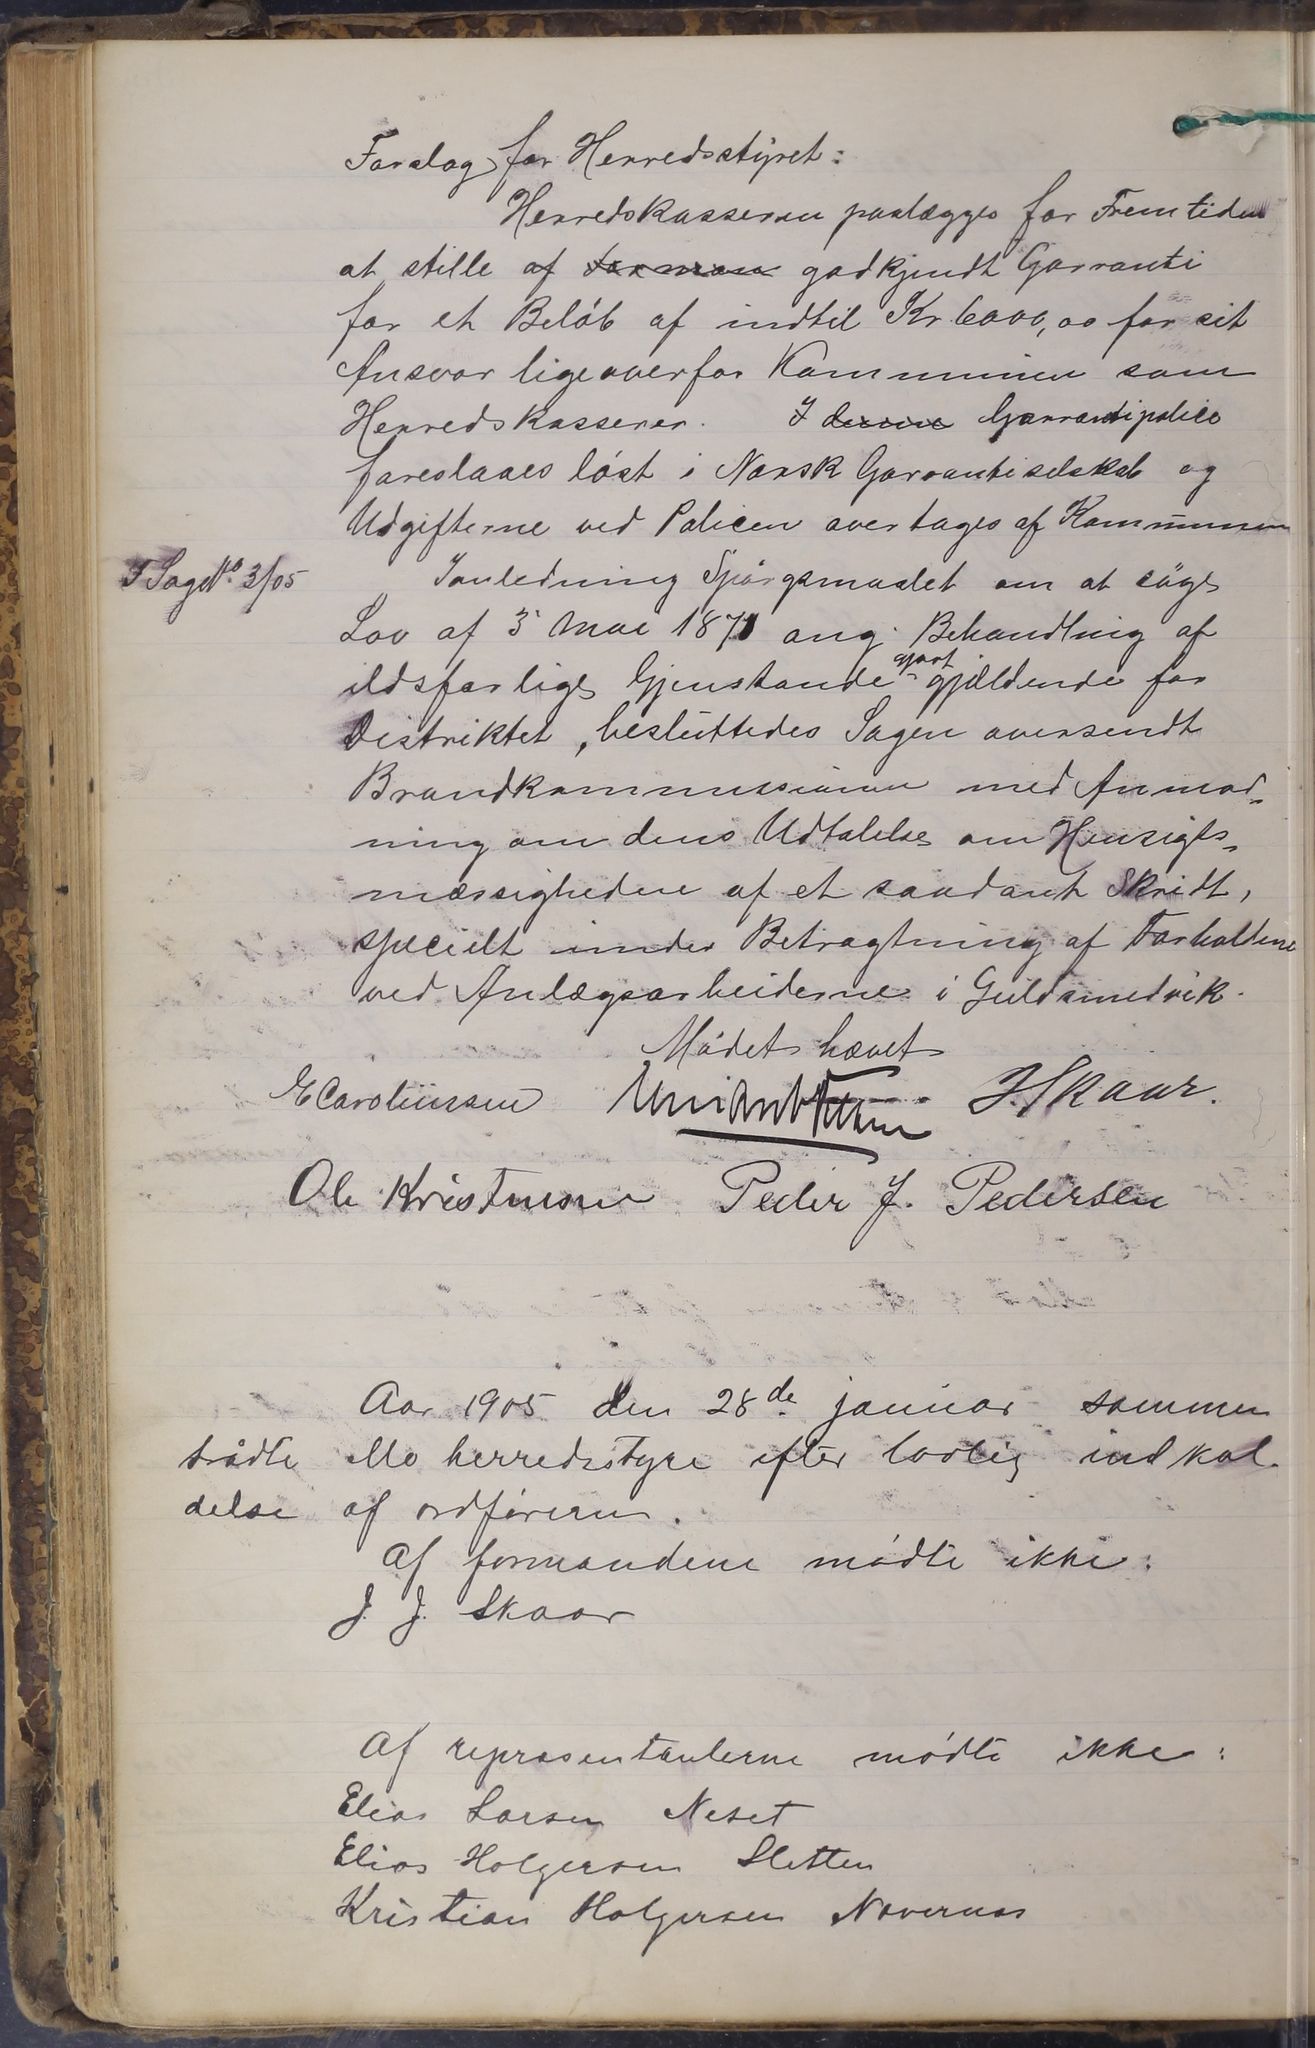 Forslag for Herredsstyret:
Herredskasseren paalægges for Fremtiden
at stille af godkjendt Garranti
for et Beløb af indtil Kr 6000,00 for sit
Ansvar ligeoverfor Kommunen som
Herredskasserer. Garrantipolice
foreslaaes løst i Norsk Garrantiselskab og
Udgifterne ved Policen overtages af Kommunen
F Sag No 3/05
I anledning Spørgsmaalet om at søge
Lov af 3 Mai 1871 ang. Behandling af
ildsfarlige Gjenstande gjort gjældende for
Distriktet, besluttedes Sagen oversendt
Brandkommissionen med Anmod-
ning om dens Udtalelse om Hensigts-
mæssigheden af et saadant Skridt,
specielt under Betragtning af Forholdene
ved Anlægsarbeiderne i Guldsmedvik.
Mødet hævet
E Carolinssen J. Skaar.
Ole Kristensen Peder J. Pedersen
Aar 1905 den 28de januar sammen
trådte Mo herredsstyre efter lovlig indkal-
delse af ordføreren.
Af formændene mødte ikke:
J. J. Skaar
Af repræsentanterne mødte ikke:
Elias Larsen Neset
Elias Holgersen Sletten
Kristian Holgersen Nævernes